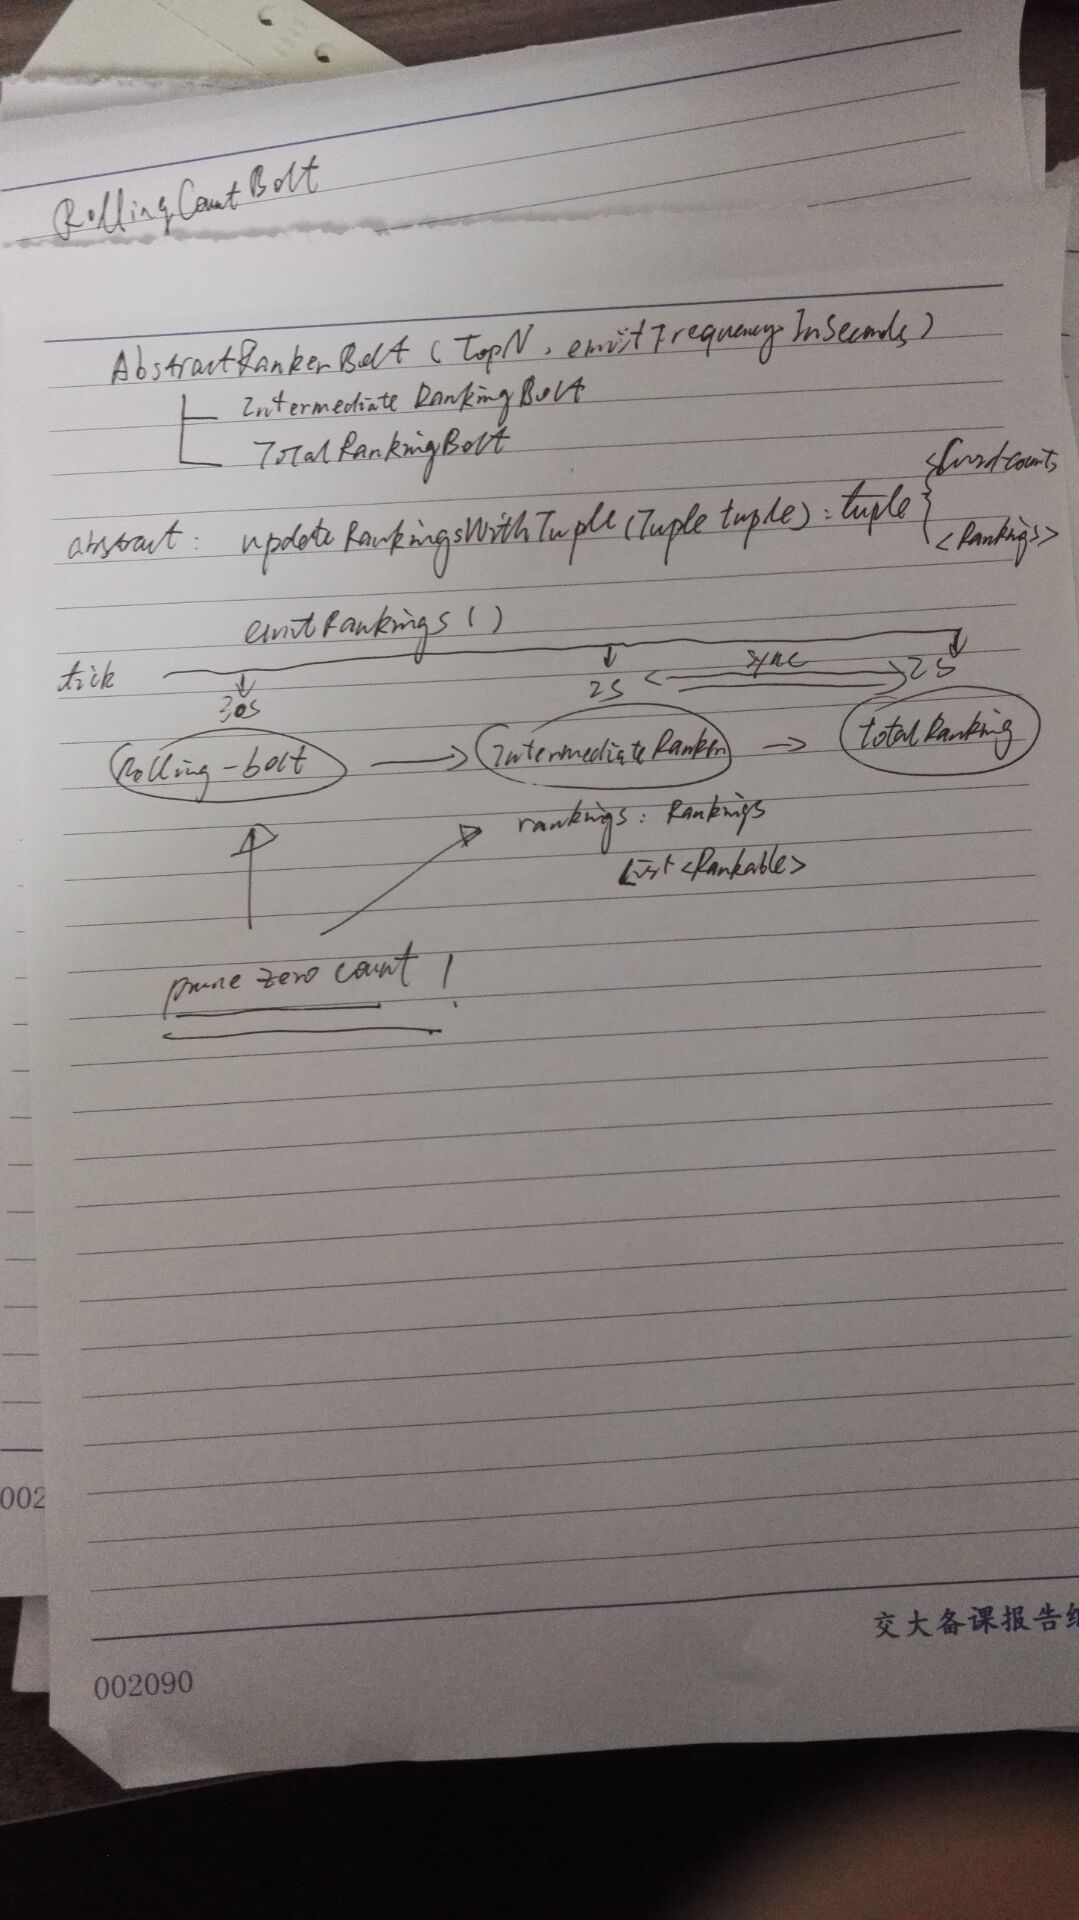 RollingCountBolt
AbstractRankerBolt (TopN, emitFrequencyInSeconds)
IntermediateRankingBolt
TotalRankingBolt
abstract: updateRankingsWithTuple(Tuple tuple): tuple { <word-count>
<Rankings>
emitRankings ( )
tick
30s 2s sync 2s
Rolling-bolt IntermediateRanker totalRanking
rankings: Rankings
List<Rankable>
prune zero count !
002
交大备课报告纸
002090